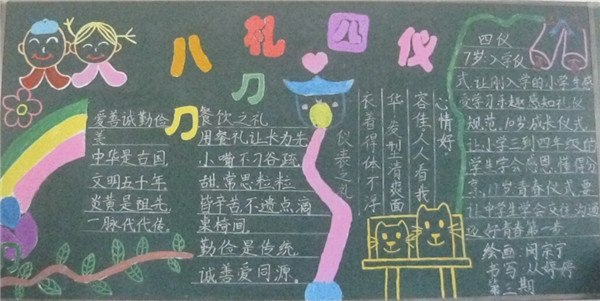 八礼四仪
爱善诚勤俭
美
中华是古国
文明五千年
炎黄是祖先
一脉代代传。
餐饮之礼
用餐礼让长为先
小嘴不刁谷蔬
甜.常思粒粒
皆辛苦.不遗点滴
桌椅间
勤俭是传统
诚善爱同源.
仪表之礼
衣着得体不浮
华,发型清爽面
容佳,人人有我
心情好.
四仪
7岁入学仪
式,让刚入学的小学生感
受学习 趣感知礼仪
规范,10岁成长仪式
让小学三到四年级的
学生学会感恩,懂得分
享,14岁青春仪式要
让中学生学会交往沟通
迈好青春第一步
绘画:闵宗宁
书写:从婷婷
第三期